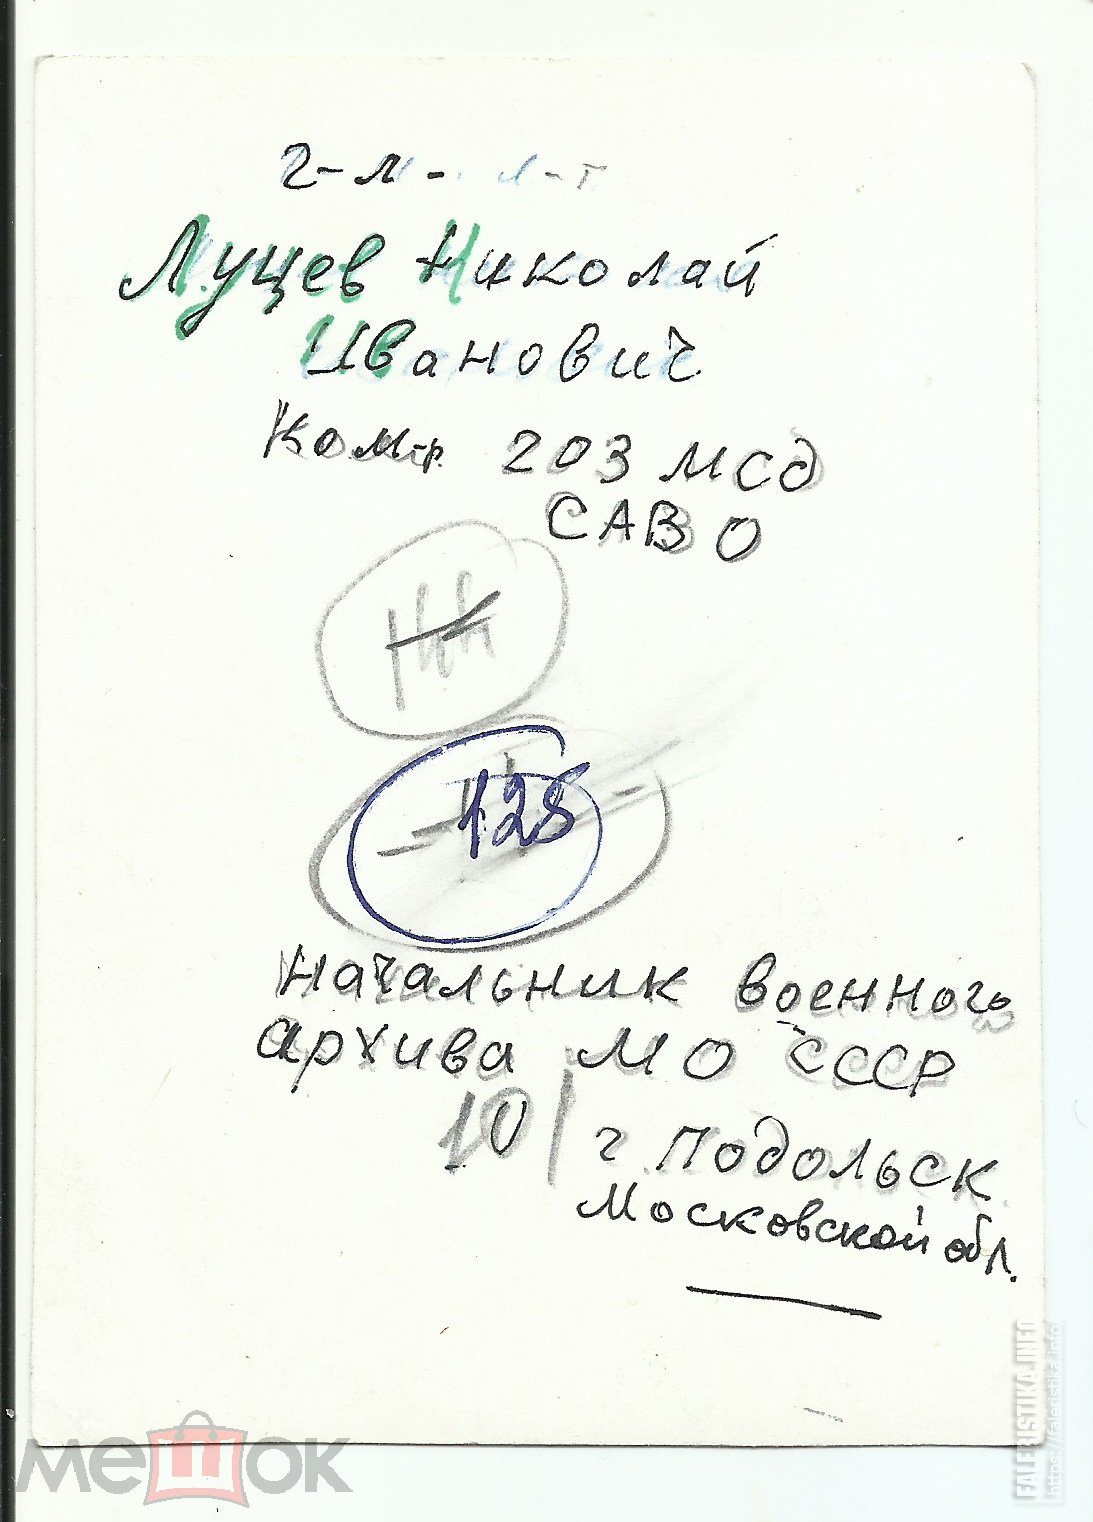 г-м- л-т
Луцев Николай
Иванович
Ком-р 203 мсд
САВО
128
Начальник военного
архива МО СССР
10/ г. Подольск
Московской обл.
мешок
FALERISTIKA.INFO
https://faleristika.info